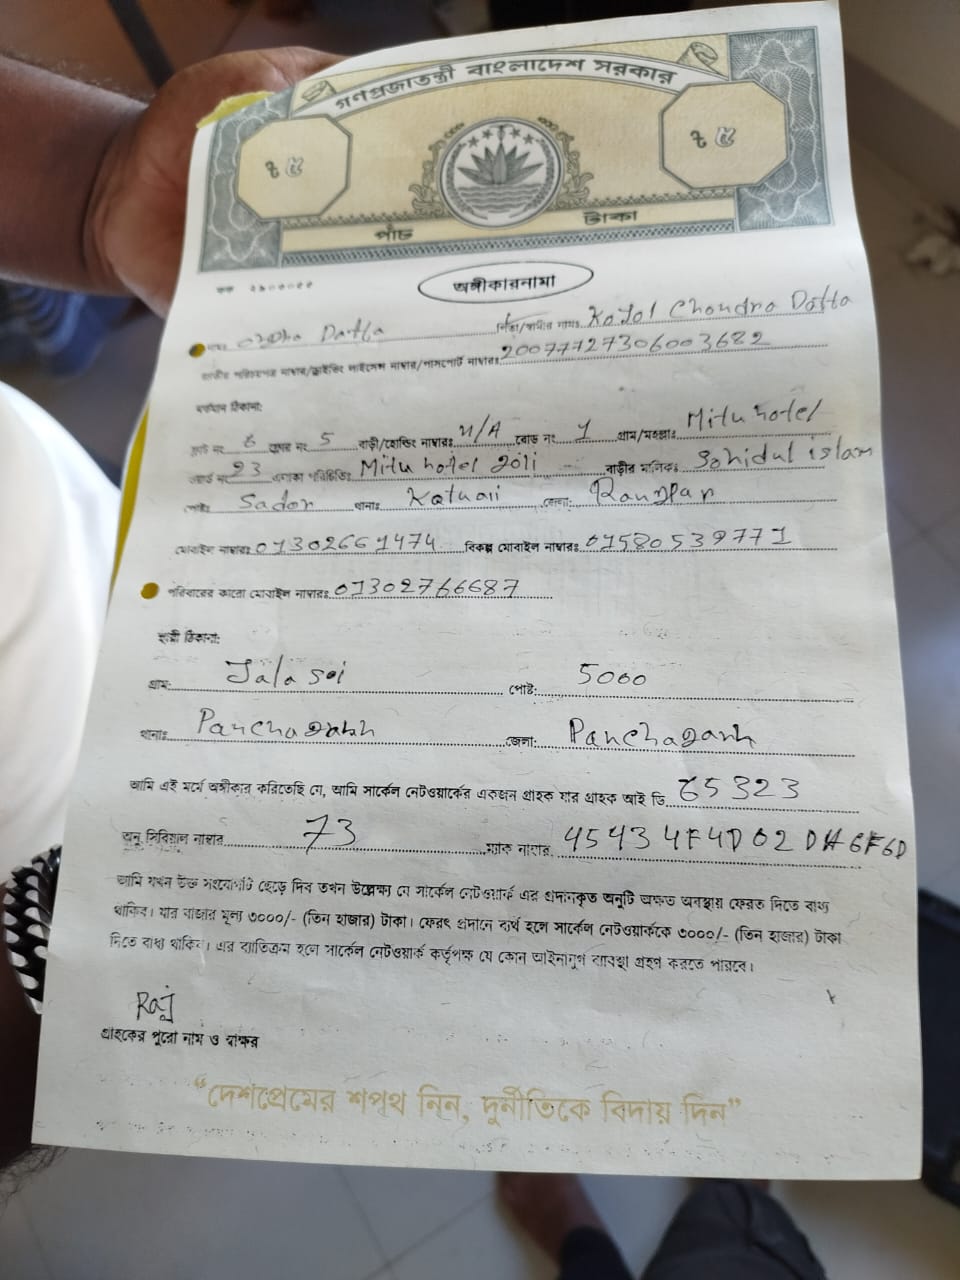 গণপ্রজাতন্ত্রী বাংলাদেশ সরকার
৳ ৫ ৳ ৫
পাঁচ টাকা
অঙ্গীকারনামা
নামঃ Datta পিতা/স্বামীর নামঃ Kajol Chondra Datta
জাতীয় পরিচয়পত্র নাম্বার/ড্রাইভিং লাইসেন্স নাম্বার/পাসপোর্ট নাম্বারঃ 20077727306003682
বর্তমান ঠিকানা:
ফ্লাট নং 6 ফ্লোর নং 5 বাড়ী/হোল্ডিং নাম্বারঃ N/A রোড নং 1 গ্রাম/মহল্লাঃ Mitu hotel
ওয়ার্ড নং 23 এলাকা পরিচিতিঃ Mitu hotel goli বাড়ীর মালিকঃ Sohidul islam
পোষ্টঃ Sador থানাঃ Kotuali জেলা: Rangpur
মোবাইল নাম্বারঃ 01302661474 বিকল্প মোবাইল নাম্বারঃ 01580539771
পরিবারের কারো মোবাইল নাম্বারঃ 01302766687
স্থায়ী ঠিকানা:
গ্রাম: Jalasoi পোষ্ট: 5000
থানাঃ Panchagahh জেলা: Panchagarh
আমি এই মর্মে অঙ্গীকার করিতেছি যে, আমি সার্কেল নেটওয়ার্কের একজন গ্রাহক যার গ্রাহক আই ডি 65323
অনু সিরিয়াল নাম্বার 73 ম্যাক নাম্বার 45434F4D02DA6F6D
আমি যখন উক্ত সংযোগটি ছেড়ে দিব তখন উল্লেক্ষ্য যে সার্কেল নেটওয়ার্ক এর প্রদানকৃত অনুটি অক্ষত অবস্থায় ফেরত দিতে বাধ্য
থাকিব। যার বাজার মূল্য ৩০০০/- (তিন হাজার) টাকা। ফেরৎ প্রদানে ব্যর্থ হলে সার্কেল নেটওয়ার্ককে ৩০০০/- (তিন হাজার) টাকা
দিতে বাধ্য থাকিব। এর ব্যাতিক্রম হলে সার্কেল নেটওয়ার্ক কর্তৃপক্ষ যে কোন আইনানুগ ব্যাবস্থা গ্রহণ করতে পারবে।
Raj
গ্রাহকের পুরো নাম ও স্বাক্ষর
“দেশপ্রেমের শপথ নিন, দুর্নীতিকে বিদায় দিন”